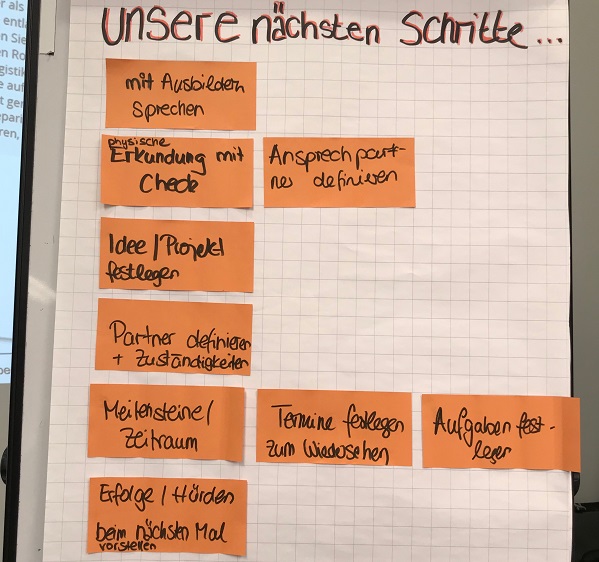 unsere nächsten Schritte...
mit Ausbildern
sprechen
physische
Erkundung mit
Check
Ansprechpart-
ner definieren
Idee/Projekt
festlegen
Partner definieren
+ Zuständigkeiten
Meilensteine/
Zeitraum
Termine festlegen
zum Wiedersehen
Aufgaben fest-
legen
Erfolge/Hürden
beim nächsten Mal
vorstellen